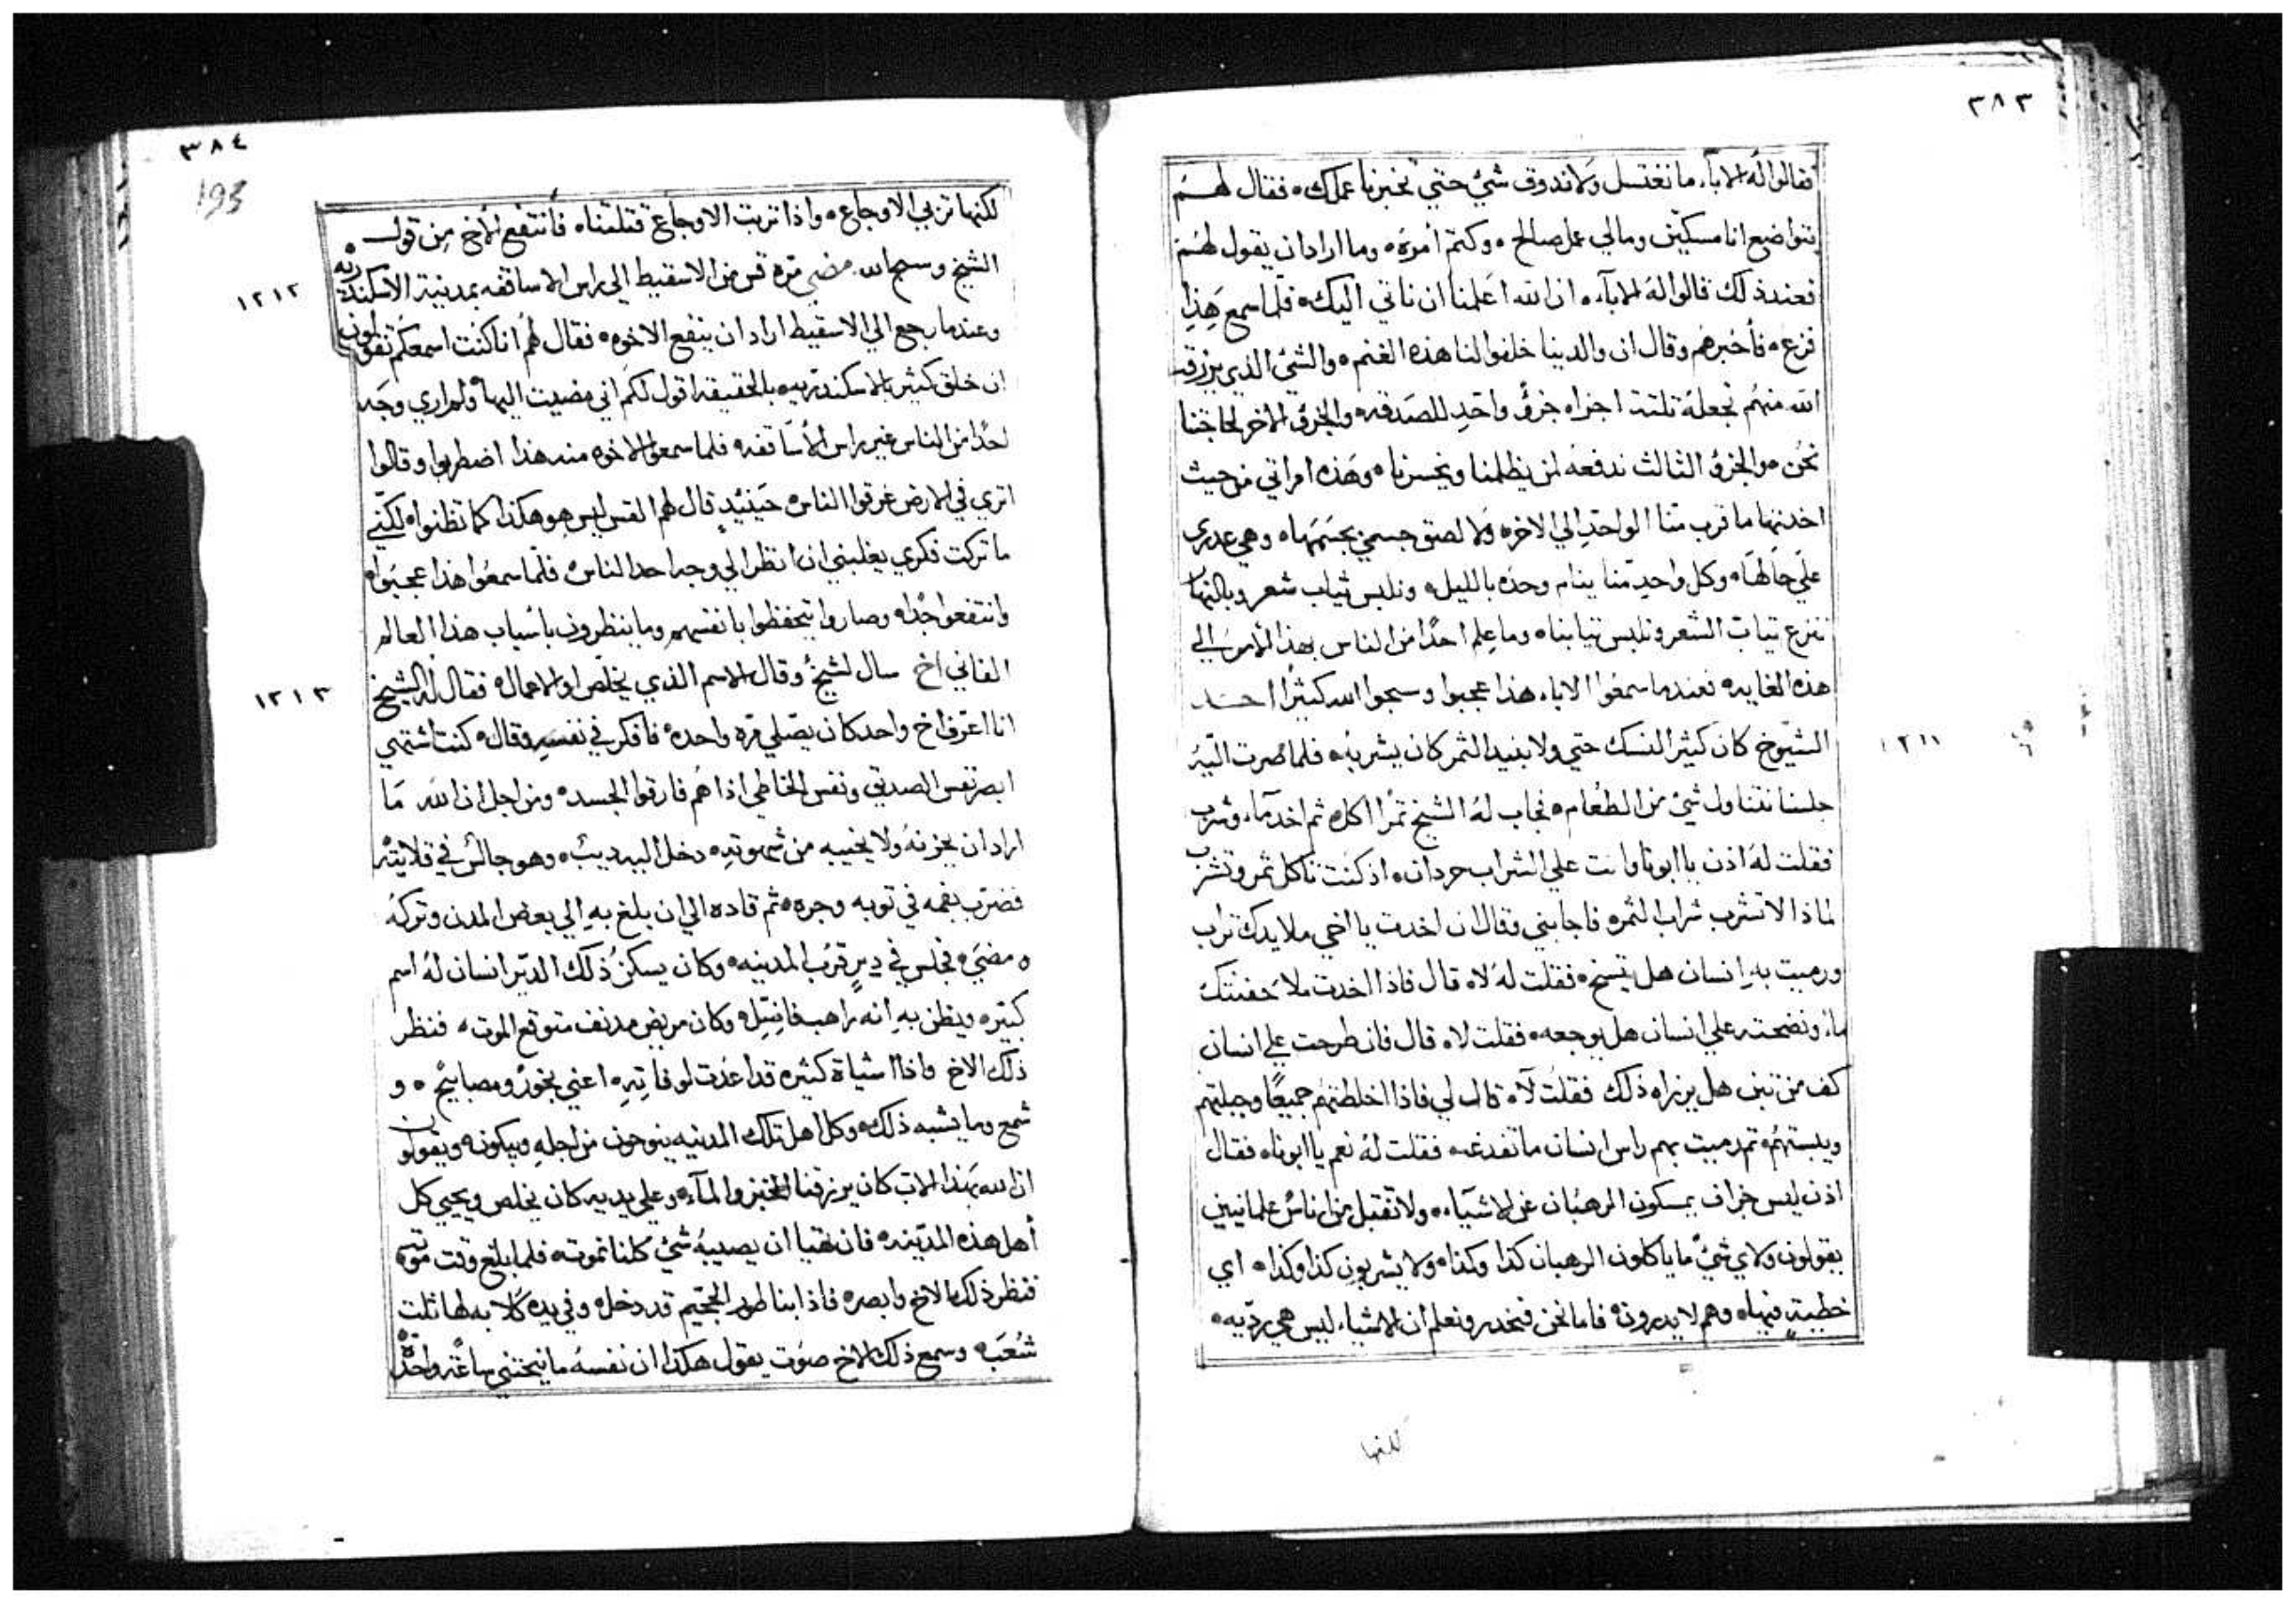 ٣٨٣
فقالوا له الاباء ما نغتسل ولا ندوق شيء حتي تخبرنا عملك ه فقال لهم
بتواضع انا مسكين ومالي عمل صالح ه وكتم امره ه وما اراد ان يقول لهم
فعند ذلك قالوا له الاباء ه ان الله اعلمنا ان ناتي اليك ه فلما سمع هذا
فزع ه فأخبرهم وقال ان والدينا خلفوا لنا هذه الغنم ه والشي الذي يرزقه
الله منهم نجعله تلتة اجزاه جزؤ واحد للصدقه ه والجزؤ الاخر لحاجتنا
نحن ه والجزؤ الثالث ندفعه لمن يظلمنا ويخسرنا ه وهذه امراتي من حيث
اخدتها ما قرب منا الواحد الي الاخر ه ولا لصق جسمي بجسمها ه وهي عدري
علي حالها ه وكل واحد منا ينام وحده بالليل ه ونلبس ثياب شعر وبالنهار
ننزع تياب الشعر ونلبس تيابنا ه وما علم احدًا من الناس بهذا الامر الي
هذه الغايه ه فعندما سمعوا الاباء هذا عجبوا وسبحوا الله كثيرًا احد
١٢١١
الشيوخ كان كثير النسك حتي ولا بنيد الثمر كان يشربه ه فلما صرت اليه
جلسنا نتناول شيء من الطعام ه فجاب له الشيخ تمرًا اكل ه ثم اخد ماء وشرب
فقلت له اذن يا ابونا وانت علي الشراب حردان ه اذ كنت تاكل ثمر وتشرب
لماذا لا تشرب شراب الثمر ه فاجابني وقال ان اخدت يا اخي ملا يدك تراب
ورميت به انسان هل يتسخ ه فقلت له لا ه قال فاذا اخدت ملا حفنتك
ماء ونضحته علي انسان هل يوجعه ه فقلت لا ه قال فان طرحت علي انسان
كف من تبن هل يرزاه ذلك فقلت لا ه قال لي فاذا اخلطتهم جميعًا وجبلتهم
ويبستهم ه تم رميت بهم راس انسان ما تفدغه ه فقلت له نعم يا ابونا ه فقال
اذن ليس جزاف يمسكون الرهبان عن الاشياء ه ولا تقبل من اناس علمانيين
يقولون ولاي شيء ما ياكلون الرهبان كذا وكذا ه ولا يشربون كذا وكذا ه اي
خطية فيها ه وهم لا يدرون ه فاما نحن فنحدر ونعلم ان الاشياء ليس هي رديه ه
لكنها
٣٨٤
193
لكنها تربي الاوجاع ه واذا تربت الاوجاع قتلتنا ه فانتفع الاخ من قول
الشيخ وسبح الله مضي مره قس من الاسقيط الي راس الاساقفه بمدينة الاسكندريه ه
١٢١٢
وعندما رجع الي الاسقيط اراد ان ينفع الاخوه ه فقال لهم انا كنت اسمعكم تقولون
ان خلق كثير بالاسكندريه ه بالحقيقه اقول لكم اني مضيت اليها ولم اري وجه
احدًا من الناس غير راس الأساقفه ه فلما سمعوا الاخوه منه هذا اضطربوا وقالوا
اتري في الارض غرقوا الناس ه حينئيد قال لهم القس ليس هو هكذا كما تظنوا ه لكني
ما تركت فكري يغلبني ان انظر الي وجه احد الناس ه فلما سمعوا هذا عجبوا ه
وانتفعوا جدًا ه وصاروا يتحفظوا بانفسهم وما ينظرون باسباب هذا العالم
الفاني اخ سال لشيخ وقال الاسم الذي يخلص او الاعمال ه فقال له الشيخ
١٢١٣
انا اعرف اخ واحد كان يصلي مره واحده ه فافكر في نفسه وقال ه كنت اشتهي
ابصر نفس الصديق ونفس الخاطي اذا هم فارقوا الجسد ه ومن اجل ان الله ما
اراد ان يحزنه ولا يخيبه من شهوته ه دخل اليه ديب ه وهو جالس في قلايته
فضرب بفمه في توبه وجره ه ثم قاده الي ان بلغ به الي بعض المدن وتركه
ه ومضي ه فجلس في دير قرب المدينه ه وكان يسكن ذلك الدير انسان له اسم
كبير ه ويظن به انه راهب فاضل ه وكان مريض مدنف متوقع الموت ه فنظر
ذلك الاخ واذا اشياة كثيره قد اعدت لوفاته ه اعني بخور ومصابيح ه و
شمع وما يشبه ذلك ه وكل اهل تلك المدينه ينوحون من اجله ويبكون ه ويقولون
ان الله بهذا الاب كان يرزقنا الخبز والماء ه وعلي يديه كان يخلص ويحيي كل
أهل هذه المدينه ه فان تهيا ان يصيبه شي كلنا نموت ه فلما بلغ وقت موته
فنظر ذلك الاخ وابصر ه فاذا بناطور الجحيم قد دخل ه وفي يده كلابه لها ثلت
شعب ه وسمع ذلك الاخ صوت يقول هكذا ان نفسه ما نيحتني ساعه واحده